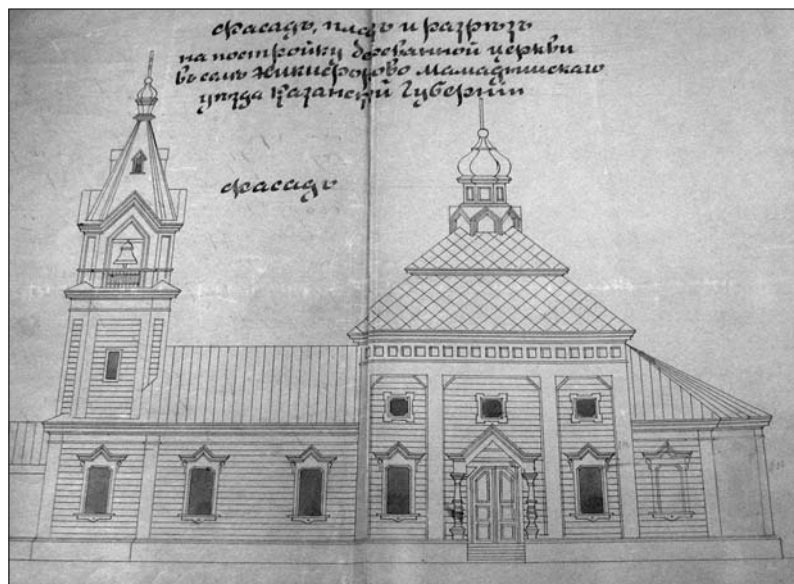 Фасадъ, планъ и разрѣзъ
на постройку деревянной церкви
въ селѣ Никифорово Мамадышскаго
уѣзда Казанской Губерніи
Фасадъ